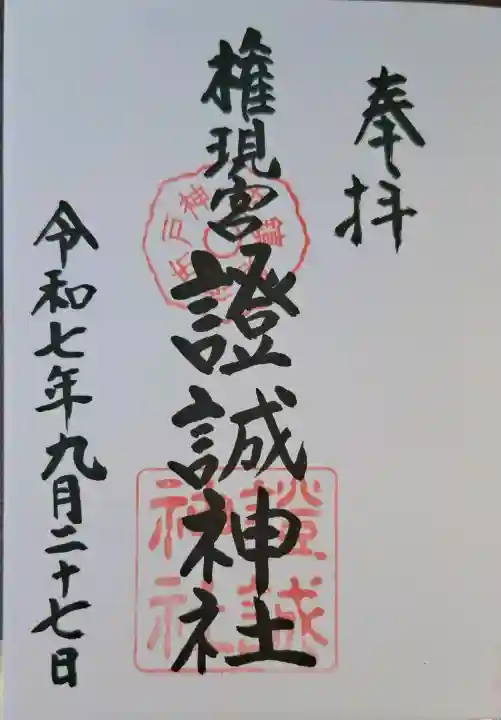 奉拝
権現宮
證誠神社
證誠
神社
令和七年九月二十七日